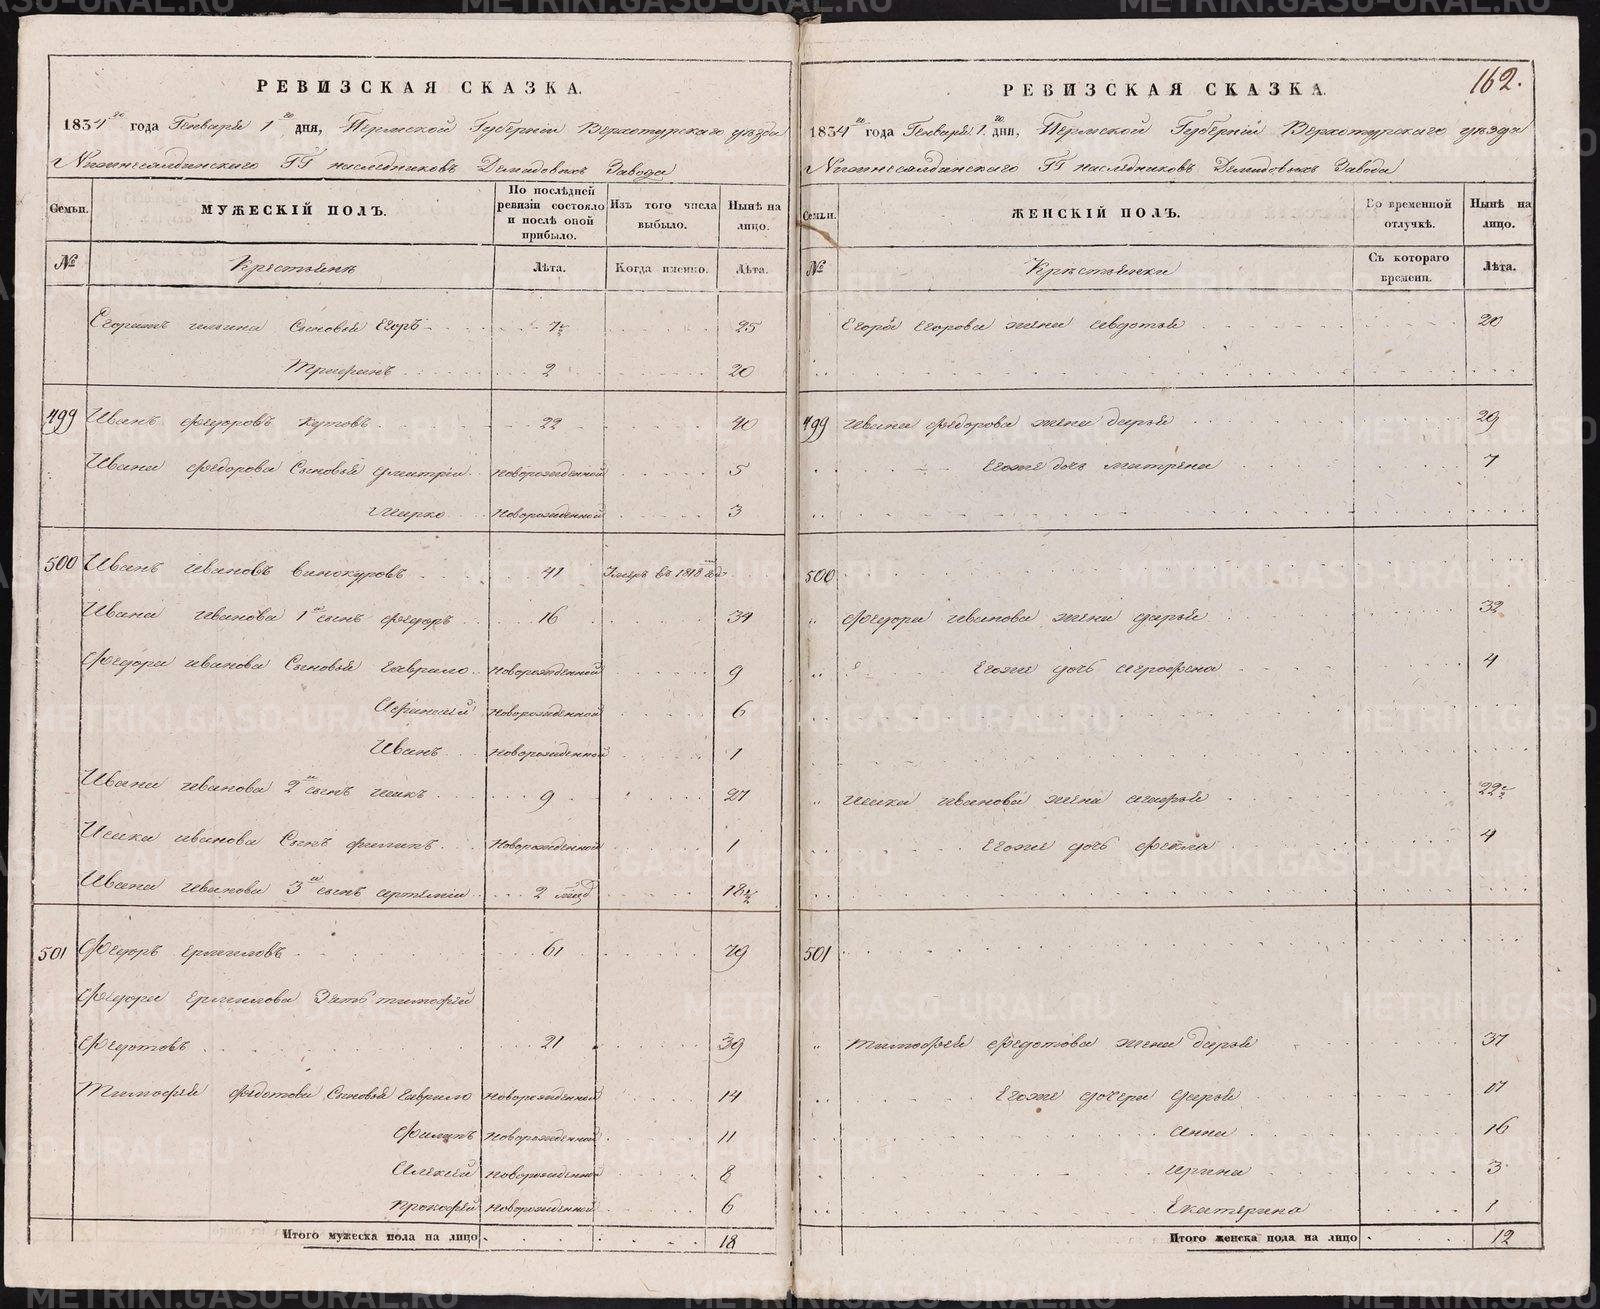 РЕВИЗСКАЯ СКАЗКА.
1834го года Генваря 1го дня, Пермской Губернiи Верхотурскаго уѣзда
Нижнесалдинскаго ГГ наслѣдниковъ Демидовыхъ Завода
Семьи. МУЖЕСКІЙ ПОЛЪ. По послѣдней ревизіи состояло и послѣ оной прибыло. Изъ того числа выбыло. Нынѣ на лицо.
№ Крестьянъ Лѣта. Когда именно. Лѣта.
Сыновья Егоръ 25
Трифанъ 2 20
499 Иванъ Федоровъ Кутовъ 22 40
Ивана Федорова Сыновья Дмитрiй новорожденной 5
Марко Новорожденной 3
500 Иванъ Ивановъ Винокуровъ 41 Умеръ въ 1818 годе
Ивана Иванова 1й сынъ Федоръ 16 34
Федора Иванова Сыновья Гаврило Новорожденной 9
Афанасей Новорожденной 6
Иванъ Новорожденной 1
Ивана Иванова 2й сынъ Исакъ 9 27
Исака Иванова Сынъ Филипъ Новорожденной 1
Ивана Иванова 3й сынъ 2 18 1/2
501 Федоръ Ермиловъ 61 79
Федора Ермилова Зять Тимофей
Федотовъ 21 39
Тимофея Федотова Сыновья Гаврило новорожденной 14
Филипъ Новорожденной 11
Алексей Новорожденной 8
Прокофей Новорожденной 6
Итого мужеска пола на лицо 18
162.
РЕВИЗСКАЯ СКАЗКА.
1834го года Генваря 1го дня, Пермской Губернiи Верхотурскаго уѣзда
Нижнесалдинскаго ГГ наслѣдниковъ Демидовыхъ Завода
Семьи. ЖЕНСКІЙ ПОЛЪ. Во временной отлучкѣ. Нынѣ на лицо.
№ Крестьянки Съ котораго времени. Лѣта.
Егора Егорова жена Авдотья 20
499 Ивана Федорова жена Дарья 29
Егоже дочь Матрена 7
500
Федора Иванова жена Дарья 32
Егоже дочь Аграфена 4
Исака Иванова жена Марья 22 1/2
Егоже дочь Фекла 4
501
Тимофея Федотова жена Дарья 37
Егоже дочери Дарья 17
Анна 16
Ирина 3
Екатерина 1
Итого женска пола на лицо 12
METRIKI.GASO-URAL.RU